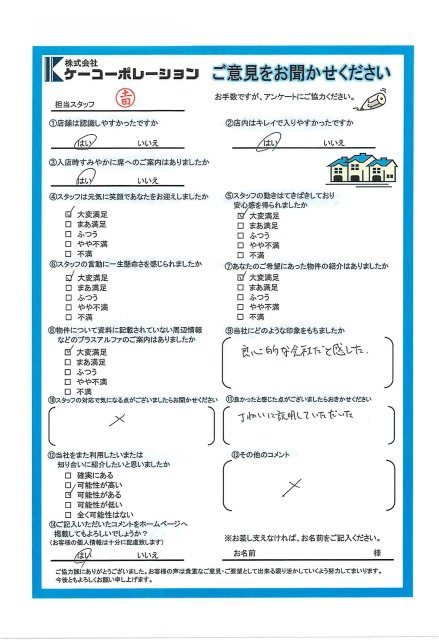 株式会社
ケーコーポレーション
ご意見をお聞かせください
担当スタッフ
お手数ですが、アンケートにご協力ください。
①店舗は認識しやすかったですか
はい いいえ
②店内はキレイで入りやすかったですか
はい いいえ
③入店時すみやかに席へのご案内はありましたか
はい いいえ
④スタッフは元気に笑顔であなたをお迎えしましたか
大変満足
まあ満足
ふつう
やや不満
不満
⑤スタッフの動きはてきぱきしており
安心感を得られましたか
大変満足
まあ満足
ふつう
やや不満
不満
⑥スタッフの言動に一生懸命さを感じられましたか
大変満足
まあ満足
ふつう
やや不満
不満
⑦あなたのご希望にあった物件の紹介はありましたか
大変満足
まあ満足
ふつう
やや不満
不満
⑧物件について資料に記載されていない周辺情報
などのプラスアルファのご案内はありましたか
大変満足
まあ満足
ふつう
やや不満
不満
⑨当社にどのような印象をもちましたか
良心的な会社だと感じた。
⑩スタッフの対応で気になる点がございましたらお聞かせください
⑪良かったと感じた点がございましたらおきかせください
ていねいに説明していただいた
⑫当社をまた利用したいまたは
知り合いに紹介したいと思いましたか
確実にある
可能性が高い
可能性がある
可能性が低い
全く可能性はない
⑬その他のコメント
⑭ご記入いただいたコメントをホームページへ
掲載してもよろしいでしょうか?
(お客様の個人情報は十分に配慮致します)
はい いいえ
※お差し支えなければ、お名前をご記入ください。
お名前 様
ご協力誠にありがとうございました。お客様の声は貴重なご意見・ご要望として出来る限り活かしていくよう努力してまいります。
今後ともよろしくお願い申し上げます。